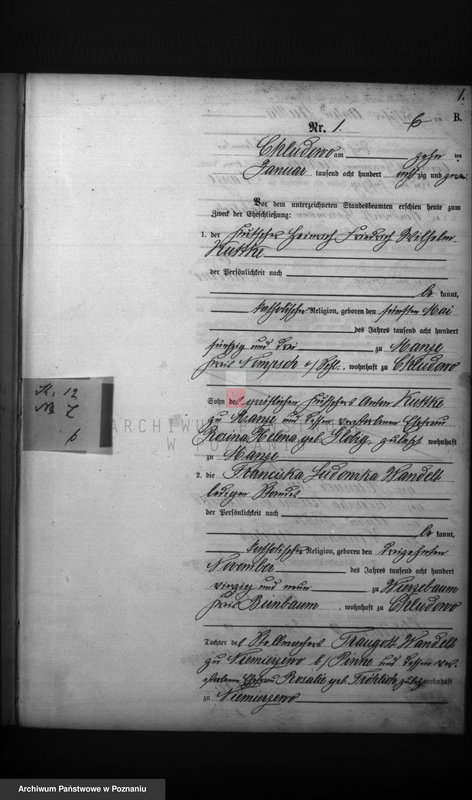 1.
B.
Nr. 1.
6
Chludowo am zehn ten
Januar tausend acht hundert achtzig und zwei
Vor dem unterzeichneten Standesbeamten erschien heute zum
Zweck der Eheschließung:
1. der Kutscher Heinrich Friedrich Wilhelm
Kuttke
der Persönlichkeit nach
be kannt,
katholischer Religion, geboren den fünften Mai
des Jahres tausend acht hundert
fünfzig und drei zu Manze
Kreis Nimptsch, wohnhaft zu Chludowo
Sohn des Kutschers Anton Kuttke
zu Manze und dessen verstorbenen Ehefrau
Rosina Helena geb. zuletzt wohnhaft
zu Manze
2. die Franciska Ludowika Wandelt
ledigen Standes
der Persönlichkeit nach
be kannt,
katholischer Religion, geboren den dreizehnten
November des Jahres tausend acht hundert
vierzig und neun zu Wierzebaum
Kreis Birnbaum, wohnhaft zu Chludowo
Tochter des Stellmachers Traugott Wandelt
zu Niemierzewo b/ Pinne und dessen ver-
storbenen Ehefrau Rosalie geb. Fröhlich zuletzt wohnhaft
zu Niemierzewo
K. 12
No. 7
6
ARCHIWUM
W
Archiwum Państwowe w Poznaniu